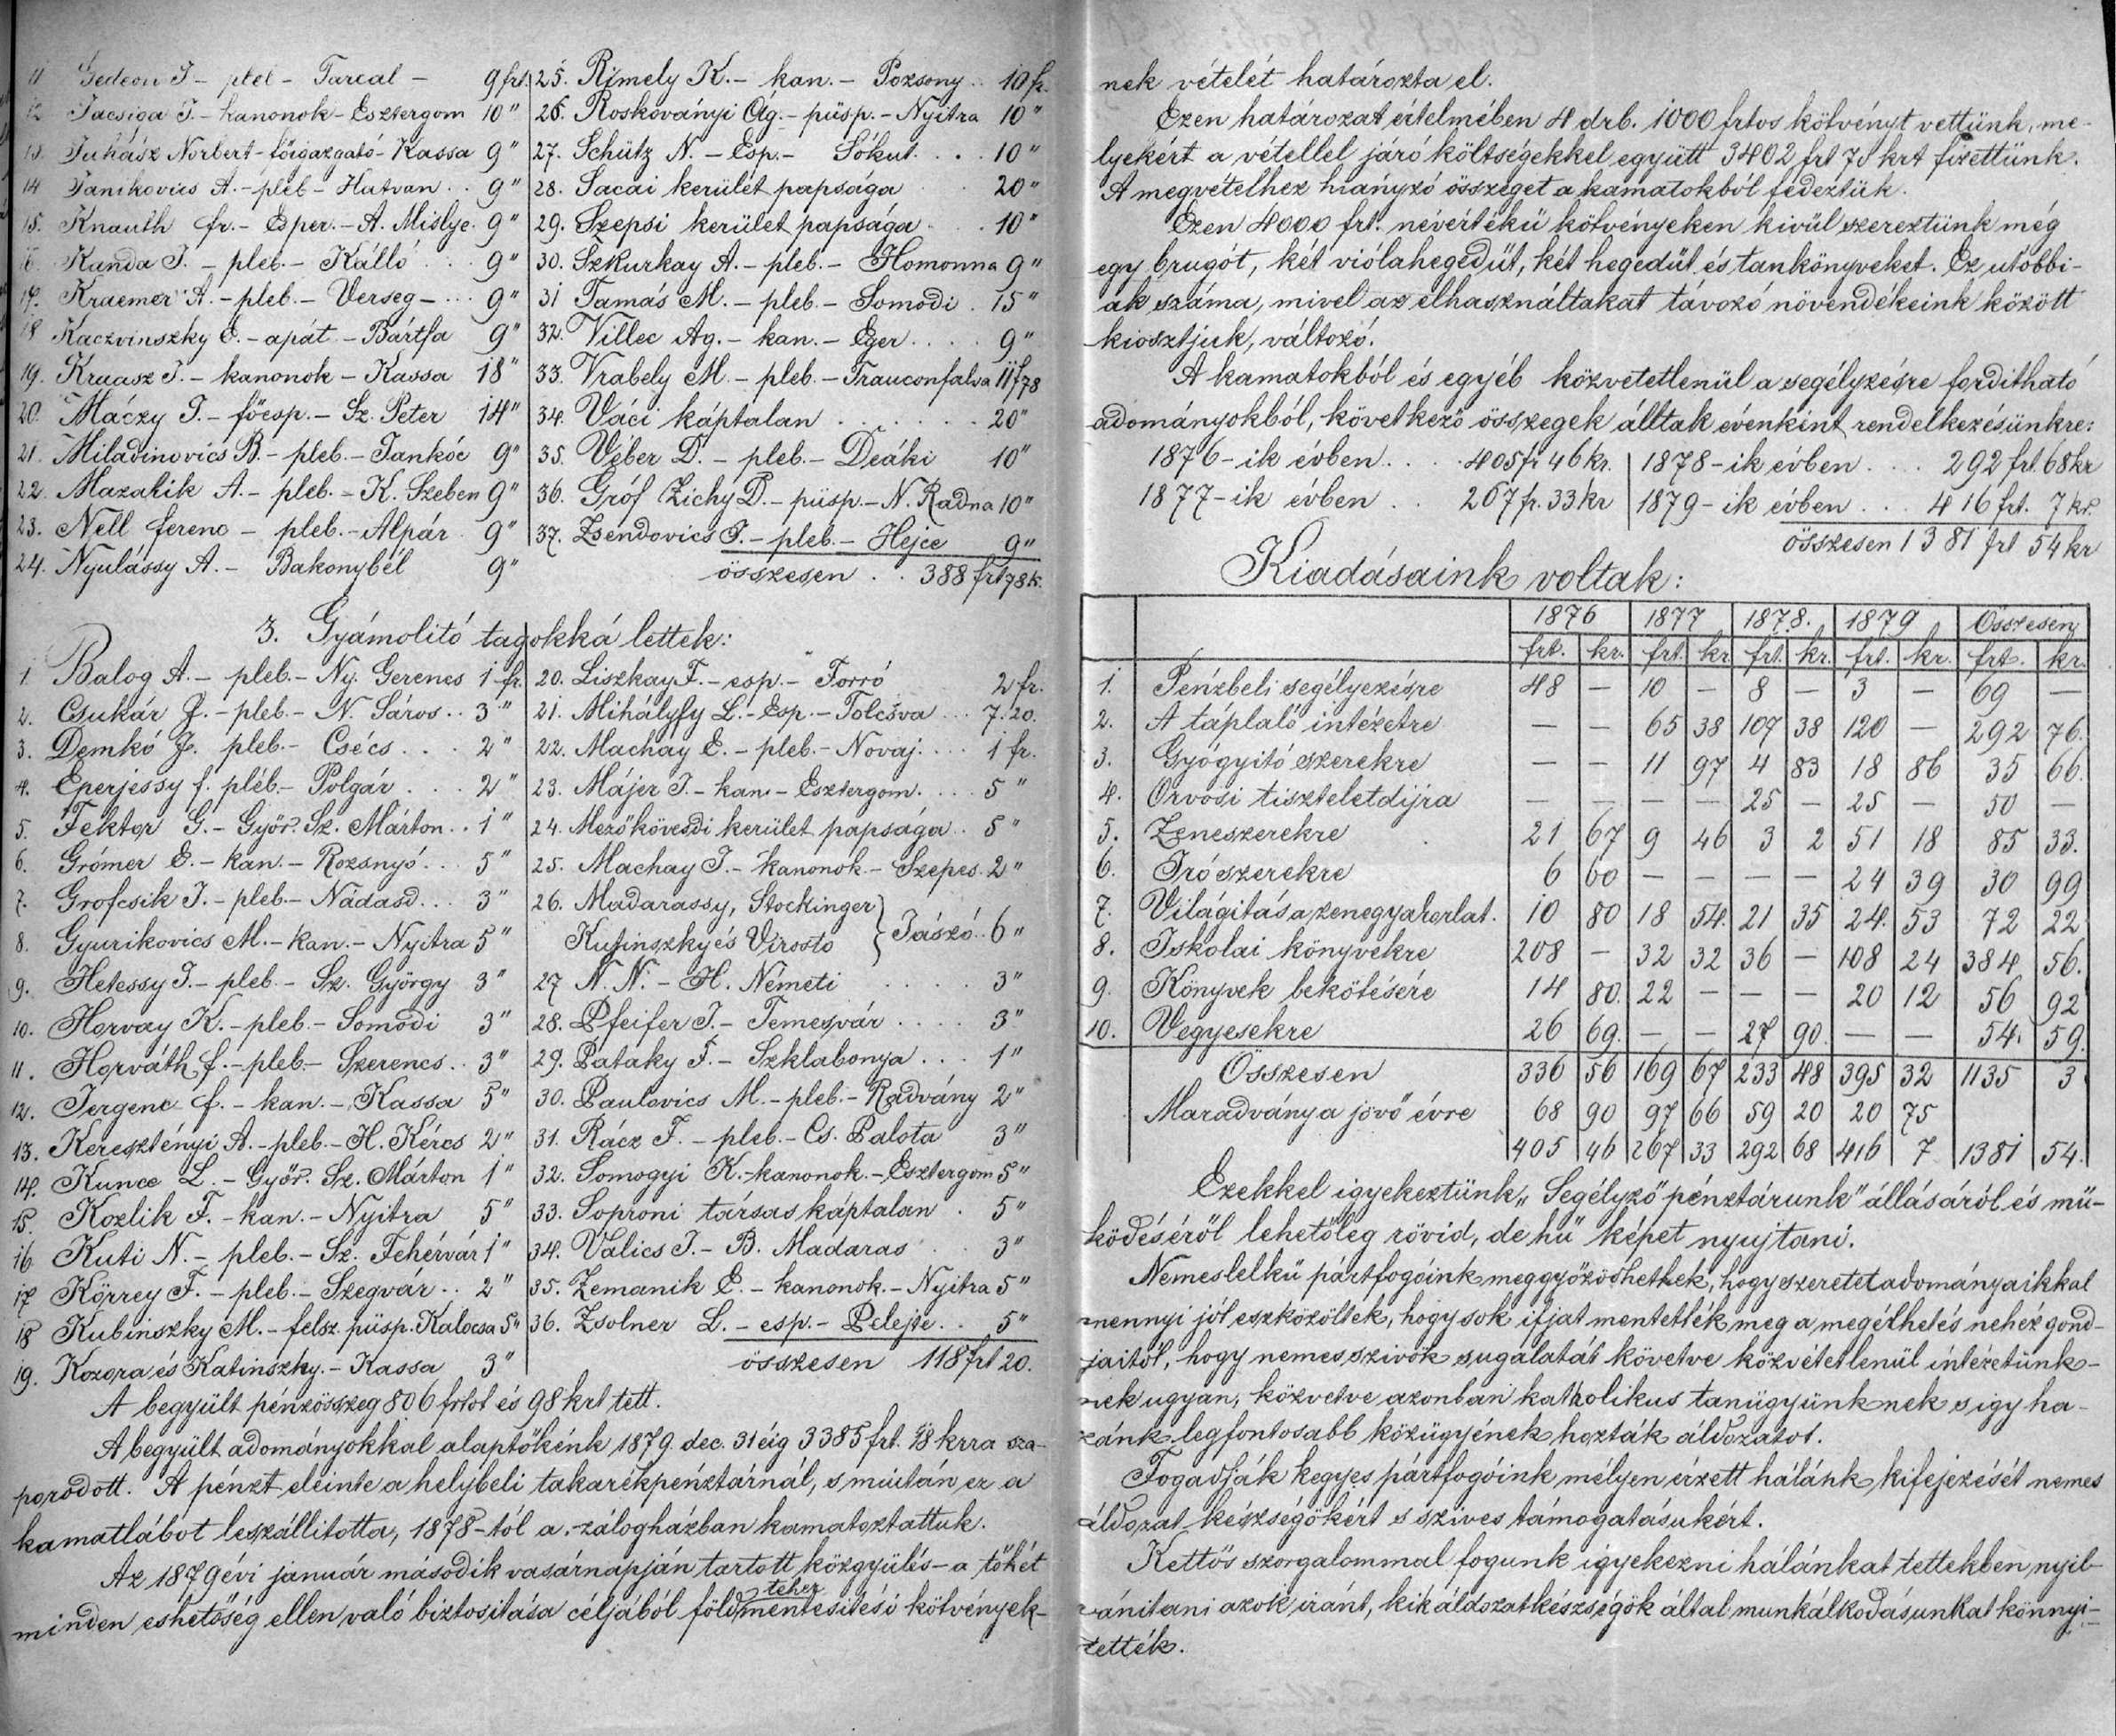 11 Gedeon I – pleb – Tarcal – 9 frt.
12 Jacsiga I. – kanonok – Esztergom 10 "
13. Juhász Norbert – főigazgató – Kassa 9 "
14 Janikovics A. – pleb – Hatvan . . 9 "
15. Knauth fr. – Esper. – A. Mislye. 9 "
16. Kanda I. – pleb. – Kálló . . . 9 "
17. Kraemer A. – pleb. – Verseg – . . . 9 "
18 Kaczvinszky E. – apát – Bártfa 9 "
19. Kruasz I. – kanonok – Kassa 18 "
20. Máczy I. – főesp. – Sz. Péter 14 "
21. Miladinovics B. – pleb. – Tankóc 9 "
22. Mazahik A. – pleb. – K. Szeben 9 "
23. Nell ferenc – pleb. – Alpár . 9 "
24. Nyulassy A. – Bakonybél 9 "
25. Rimely K. – kan. – Pozsony . . 10 fr.
26. Roskoványi Ág. – püsp. – Nyitra 10 "
27. Schütz N. – Esp. – Sókut . . . 10 "
28. Sacai kerület papsága . 20 "
29. Szepsi kerület papsága . . 10 "
30. Szkurkay A. – pleb. – Homonna 9 "
31 Tamás M. – pleb. – Somodi . 15 "
32. Villec Ag. – kan. – Eger . . . . 9 "
33. Vrabely M. – pleb. – Trauconfalva 11 f 78
34. Váci káptalan . . . . . . 20 "
35. Véber D. – pleb. – Deáki 10 "
36. Gróf Zichy D. – püsp. – N. Radna 10 "
37. Zsendovics I. – pleb. – Hejce 9 "
összesen . . 388 frt 78 k.
3. Gyámolitó tagokká lettek:
1. Balog A. – pleb. – Ny. Gerencs 1 fr.
2. Csukár J. – pleb. – N. Sáros . . 3 "
3. Demkó J. pleb. – Csécs . . . 2 "
4. Eperjessy f. pleb. – Polgár . . . 2 "
5. Fektor G. – Győr. Sz. Márton . . 1 "
6. Grómer E. – kan. – Rozsnyó . . 5 "
7. Grofcsik I. – pleb. – Nádasd . . . 3 "
8. Gyurikovics M. – kan. – Nyitra 5 "
9. Hetessy I. – pleb. – Sz. György 3 "
10. Horvay K. – pleb. – Somodi 3 "
11. Horváth f. – pleb. – Szerencs . . 3 "
12. Jergenc f. – kan. – Kassa 5 "
13. Keresztényi A. – pleb. – H. Kércs 2 "
14. Kunce L. – Győr. Sz. Márton 1 "
15. Kozlik F. – kan. – Nyitra 5 "
16 Kuti N. – pleb. – Sz. Fehérvár 1 "
17 Körrey F. – pleb. – Szegvár . . 2 "
18 Kubinszky M. – felsz. püsp. Kalocsa 5 "
19. Kozora és Katinszky. – Kassa 3 "
20. Liszkay F. – esp. – Forró 2 fr.
21. Mihályfy L. – Esp. – Tolcsva . . . 7.20.
22. Machay E. – pleb. – Novaj . . . . 1 fr.
23. Májer I. – kan. – Esztergom . . . . 5 "
24. Mezőkövesdi kerület papsága . . 5 "
25. Machay I. – kanonok. – Szepes. 2 "
26. Madarassy, Stockinger
Kufinszky és Virosto } Jászó . . 6 "
27 N. N. – H. Németi . . . . . 3 "
28. Pfeifer I. – Temesvár . . . . 3 "
29. Pataky F. – Szklabonya . . . 1 "
30. Paulovics M. – pleb. – Radvány 2 "
31. Rácz F. – pleb. – Cs. Palota 3 "
32. Somogyi K. – kanonok. – Esztergom 5 "
33. Soproni társas káptalan . 5 "
34. Valics I. – B. Madaras . . 3 "
35. Zemanik E. – kanonok. – Nyitra 5 "
36. Zsolner L. – esp. – Pelejte . . 5 "
összesen 118 frt 20.
A begyült pénzösszeg 806 frtot és 98 krt tett.
A begyült adományokkal alaptőkénk 1879. dec. 31 éig 3385 frt. 98 krra sza-
porodott. A pénzt eleinte a helybeli takarékpénztárnál, s miután ez a
kamatlábot leszállitotta, 1878-tól a zálogházban kamatoztattuk.
Az 1879 évi január második vasárnapján tartott közgyülés – a tőkét
minden eshetőség ellen való biztositása céljából földtehermentesitési kötvények-
nek vételét határozta el.
Ezen határozat értelmében 4 drb. 1000 frtos kötvényt vettünk, me-
lyekért a vétellel járó költségekkel együtt 3402 frt 78 krt fizettünk.
A megvételhez hiányzó összeget a kamatokból fedeztük.
Ezen 4000 frt. névértékü kötvényeken kivül szereztünk még
egy brugót, két violahegedüt, két hegedüt és tankönyveket. Ez utóbbi-
ak száma, mivel az elhasználtakat távozó növendékeink között
kiosztjuk, változó.
A kamatokból és egyéb közvetetlenül a segélyzésre forditható
adományokból, következő összegek álltak évenként rendelkezésünkre:
1876-ik évben . . . 405 fr 46 kr. 1878-ik évben . . . 292 frt. 68 kr
1877-ik évben . . 267 fr. 33 kr 1879-ik évben . . . 416 frt. 7 kr.
összesen 1381 frt 54 kr
Kiadásaink voltak:
1876 1877 1878. 1879 Összesen
frt. kr. frt. kr frt. kr. frt. kr. frt. kr.
1. Pénzbeli segélyezésre 48 – 10 – 8 – 3 – 69 –
2. A tápláló intézetre – – 65 38 107 38 120 – 292 76.
3. Gyógyitó szerekre – – 11 97 4 83 18 86 35 66.
4. Orvosi tiszteletdijra – – – – 25 – 25 – 50 –
5. Zeneszerekre 21 67 9 46 3 2 51 18 85 33.
6. Irószerekre 6 60 – – – – 24 39 30 99
7. Világitás a zenegyakorlat. 10 80 18 54. 21 35 24. 53 72 22
8. Iskolai könyvekre 208 – 32 32 36 – 108 24 384 56.
9. Könyvek bekötésére 14 80. 22 – – – 20 12 56 92
10. Vegyesekre 26 69. – – 27 90. – – 54. 59.
Összesen 336 56 169 67 233 48 395 32 1135 3
Maradvány a jövő évre 68 90 97 66 59 20 20 75
405 46 267 33 292 68 416 7 1381 54.
Ezekkel igyekeztünk „Segélyző pénztárunk" állásáról és mü-
ködéséről lehetőleg rövid, de hü képet nyujtani.
Nemeslelkü pártfogóink meggyőződhettek, hogy szeretetadományaikkal
mennyi jót eszközöltek, hogy sok ifjat mentettek meg a megélhetés nehéz gond-
jaitól, hogy nemes szivök sugalatát követve közvetetlenül intézetünk-
nek ugyan, közvetve azonban katholikus tanügyünknek s igy ha-
zánk legfontosabb közügyének hozták áldozatot.
Fogadják kegyes pártfogóink mélyen érzett hálánk kifejezését nemes
áldozat készségökért s szives támogatásukért.
Kettős szorgalommal fogunk igyekezni hálánkat tettekben nyil-
vánitani azok iránt, kik áldozatkészségök által munkálkodásunkat könnyi-
tették.